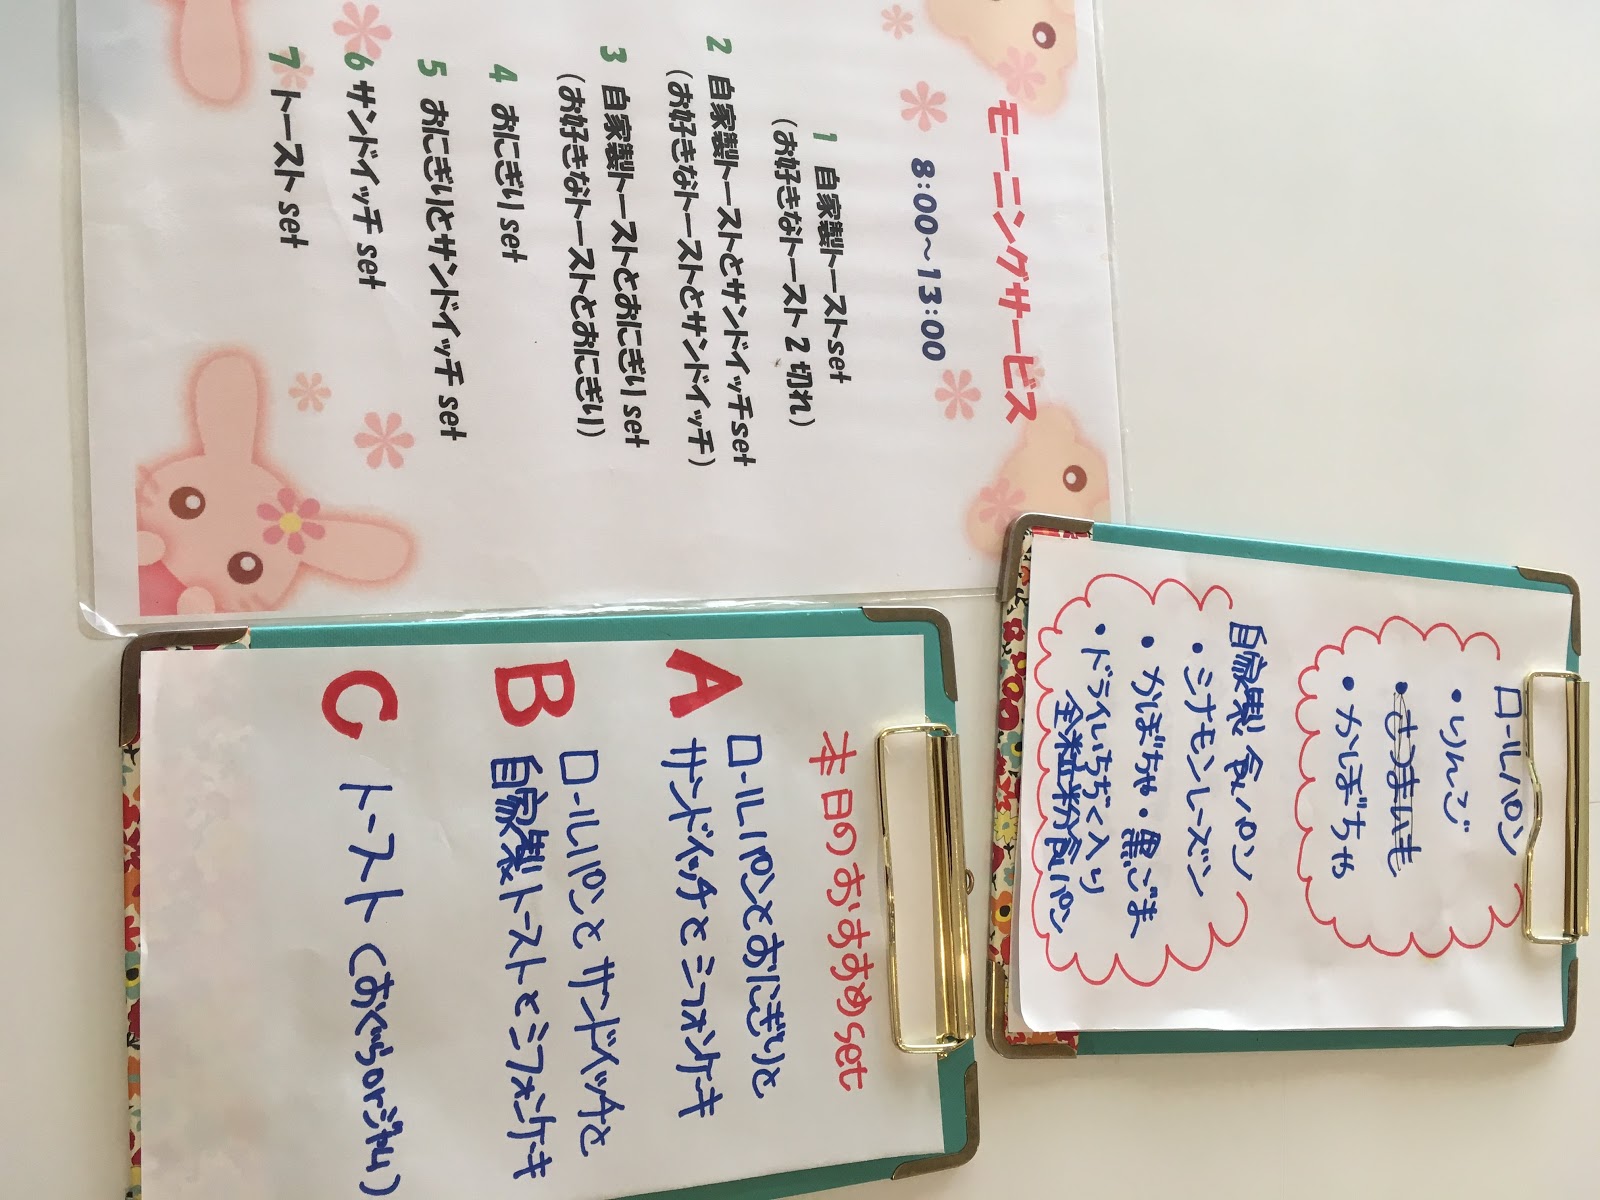 モーニングサービス
8:00～13:00
1 自家製トーストset
(お好きなトースト2切れ)
2 自家製トーストとサンドイッチset
(お好きなトーストとサンドイッチ)
3 自家製トーストとおにぎりset
(お好きなトーストとおにぎり)
4 おにぎりset
5 おにぎりとサンドイッチset
6 サンドイッチset
7 トーストset
ロールパン
・りんご
・さつまいも
・かぼちゃ
自家製食パン
・シナモンレーズン
・かぼちゃ・黒ごま
・ドライいちぢく入り
全粒粉食パン
本日のおすすめset
A ロールパンとおにぎりと
サンドイッチとシフォンケーキ
B ロールパンとサンドイッチと
自家製トーストとシフォンケーキ
C トースト(おぐらorジャム)